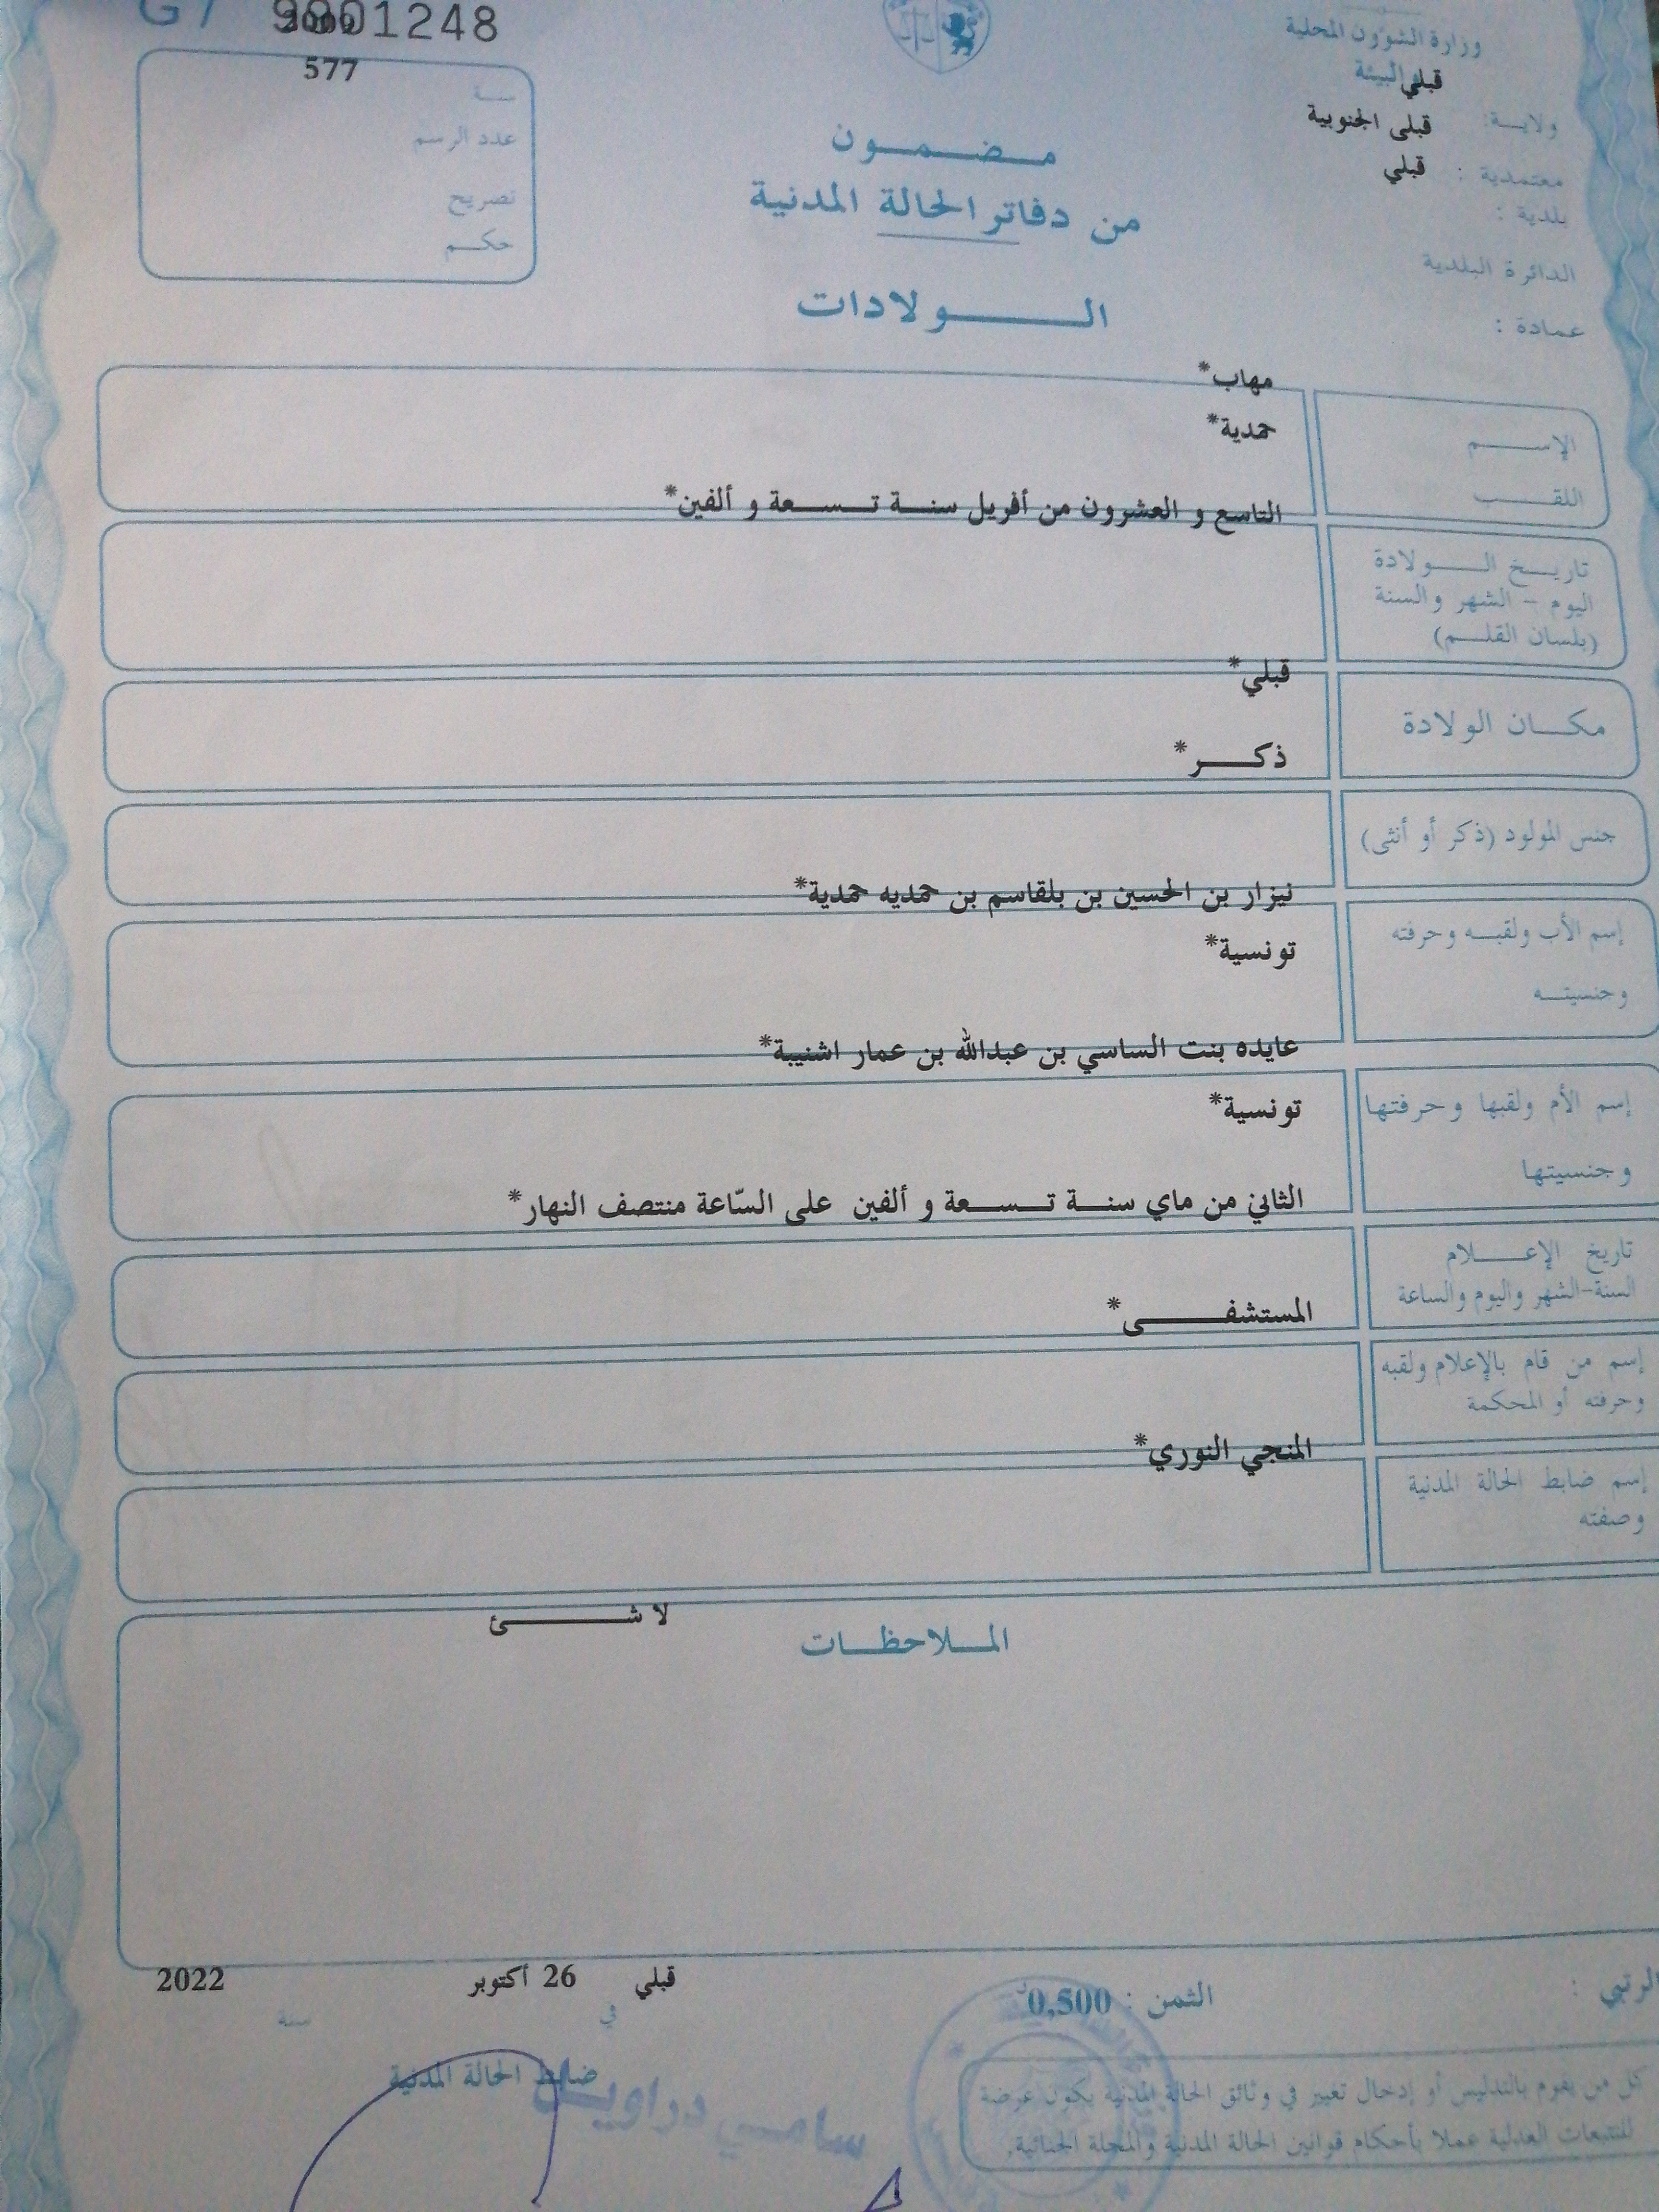 1248
2009
577
سنة
عدد الرسم
تصريح
حكم
وزارة الشؤون المحلية
والبيئة
قبلي
ولاية:
قبلى الجنوبية
معتمدية :
قبلي
بلدية :
الدائرة البلدية
عمادة :
مضمون
من دفاتر الحالة المدنية
الولادات
مهاب*
الإسم
حمدية*
اللقب
التاسع و العشرون من أفريل سنة تسعة و ألفين*
تاريخ الولادة
اليوم - الشهر والسنة
(بلسان القلم)
قبلي*
مكان الولادة
ذكر*
جنس المولود (ذكر أو أنثى)
نيزار بن الحسين بن بلقاسم بن حمديه حمدية*
إسم الأب ولقبه وحرفته
تونسية*
وجنسيته
عايده بنت الساسي بن عبدالله بن عمار اشنيبة*
إسم الأم ولقبها وحرفتها
تونسية*
وجنسيتها
الثاني من ماي سنة تسعة و ألفين على السّاعة منتصف النهار*
تاريخ الإعلام
السنة-الشهر واليوم والساعة
المستشفى*
إسم من قام بالإعلام ولقبه
وحرفته أو المحكمة
المنجي النوري*
إسم ضابط الحالة المدنية
وصفته
لا شئ
الملاحظات
قبلي 26 أكتوبر 2022
في سنة
الثمن : 0,500
ضابط الحالة المدنية
سامي دراويل
كل من يقوم بالتدليس أو إدخال تغيير في وثائق الحالة المدنية يكون عرضة
للتتبعات العدلية عملا بأحكام قوانين الحالة المدنية والمجلة الجنائية.